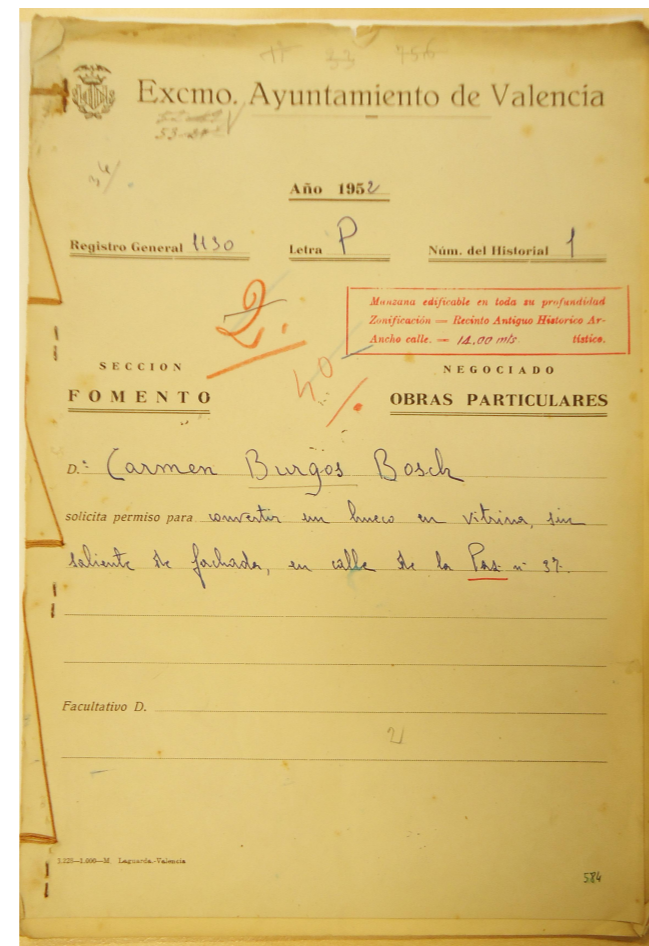 33 756
Excmo. Ayuntamiento de Valencia
Año 1952
Registro General 1130 Letra P Núm. del Historial 1
2.
Manzana edificable en toda su profundidad
Zonificación — Recinto Antiguo Historico Ar-
Ancho calle. — 14,00 mts. tístico.
40
SECCION
FOMENTO
NEGOCIADO
OBRAS PARTICULARES
D.ª Carmen Burgos Bosch
solicita permiso para convertir un hueco en vitrina, sin
saliente de fachada, en calle de la Paz nº 37.
Facultativo D.
21
3.125—1.000—M. Laguarda.-Valencia
584